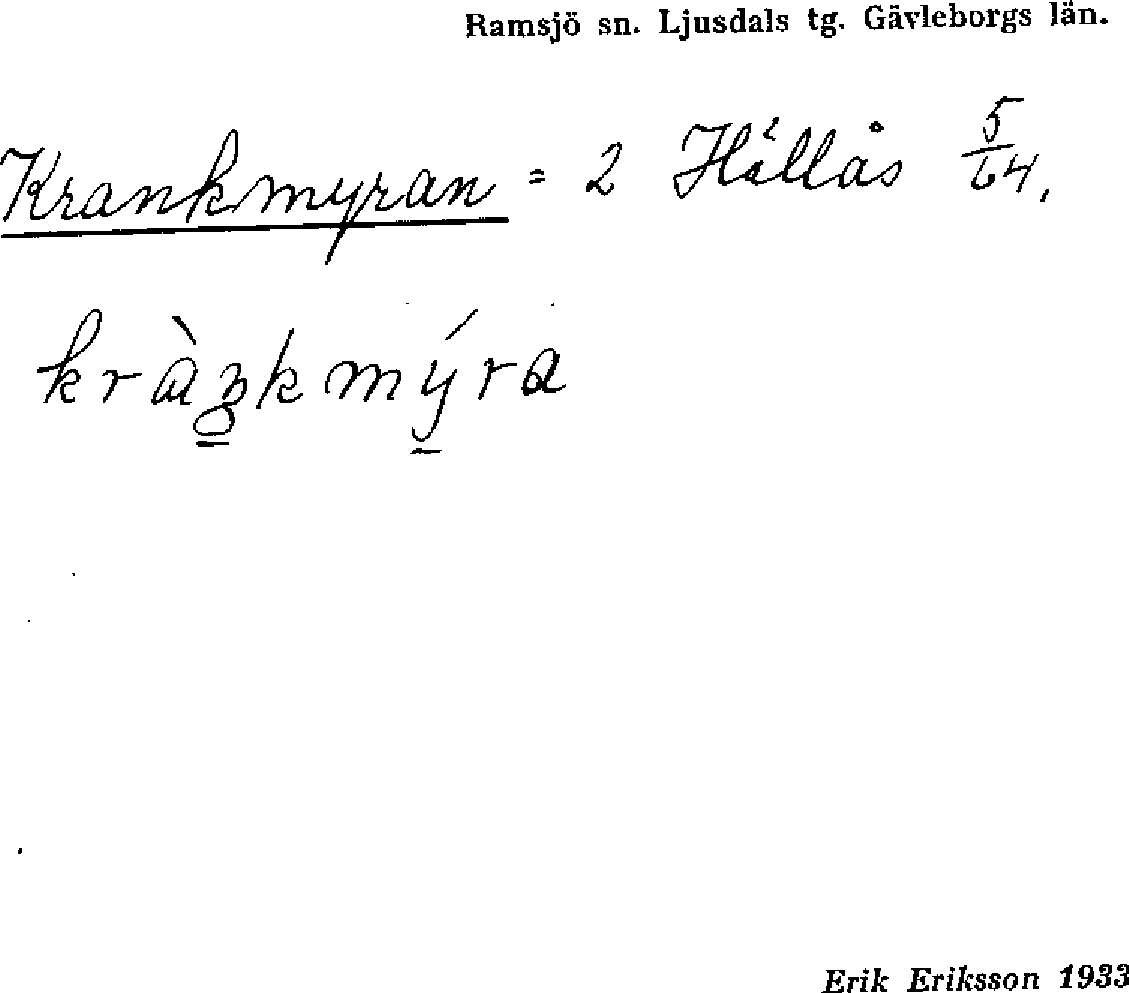 Ramsjö sn. Ljusdals tg. Gävleborgs län.
Krankmyran = 2 Hállås 5/64.
kràŋkmýra
Erik Eriksson 1933